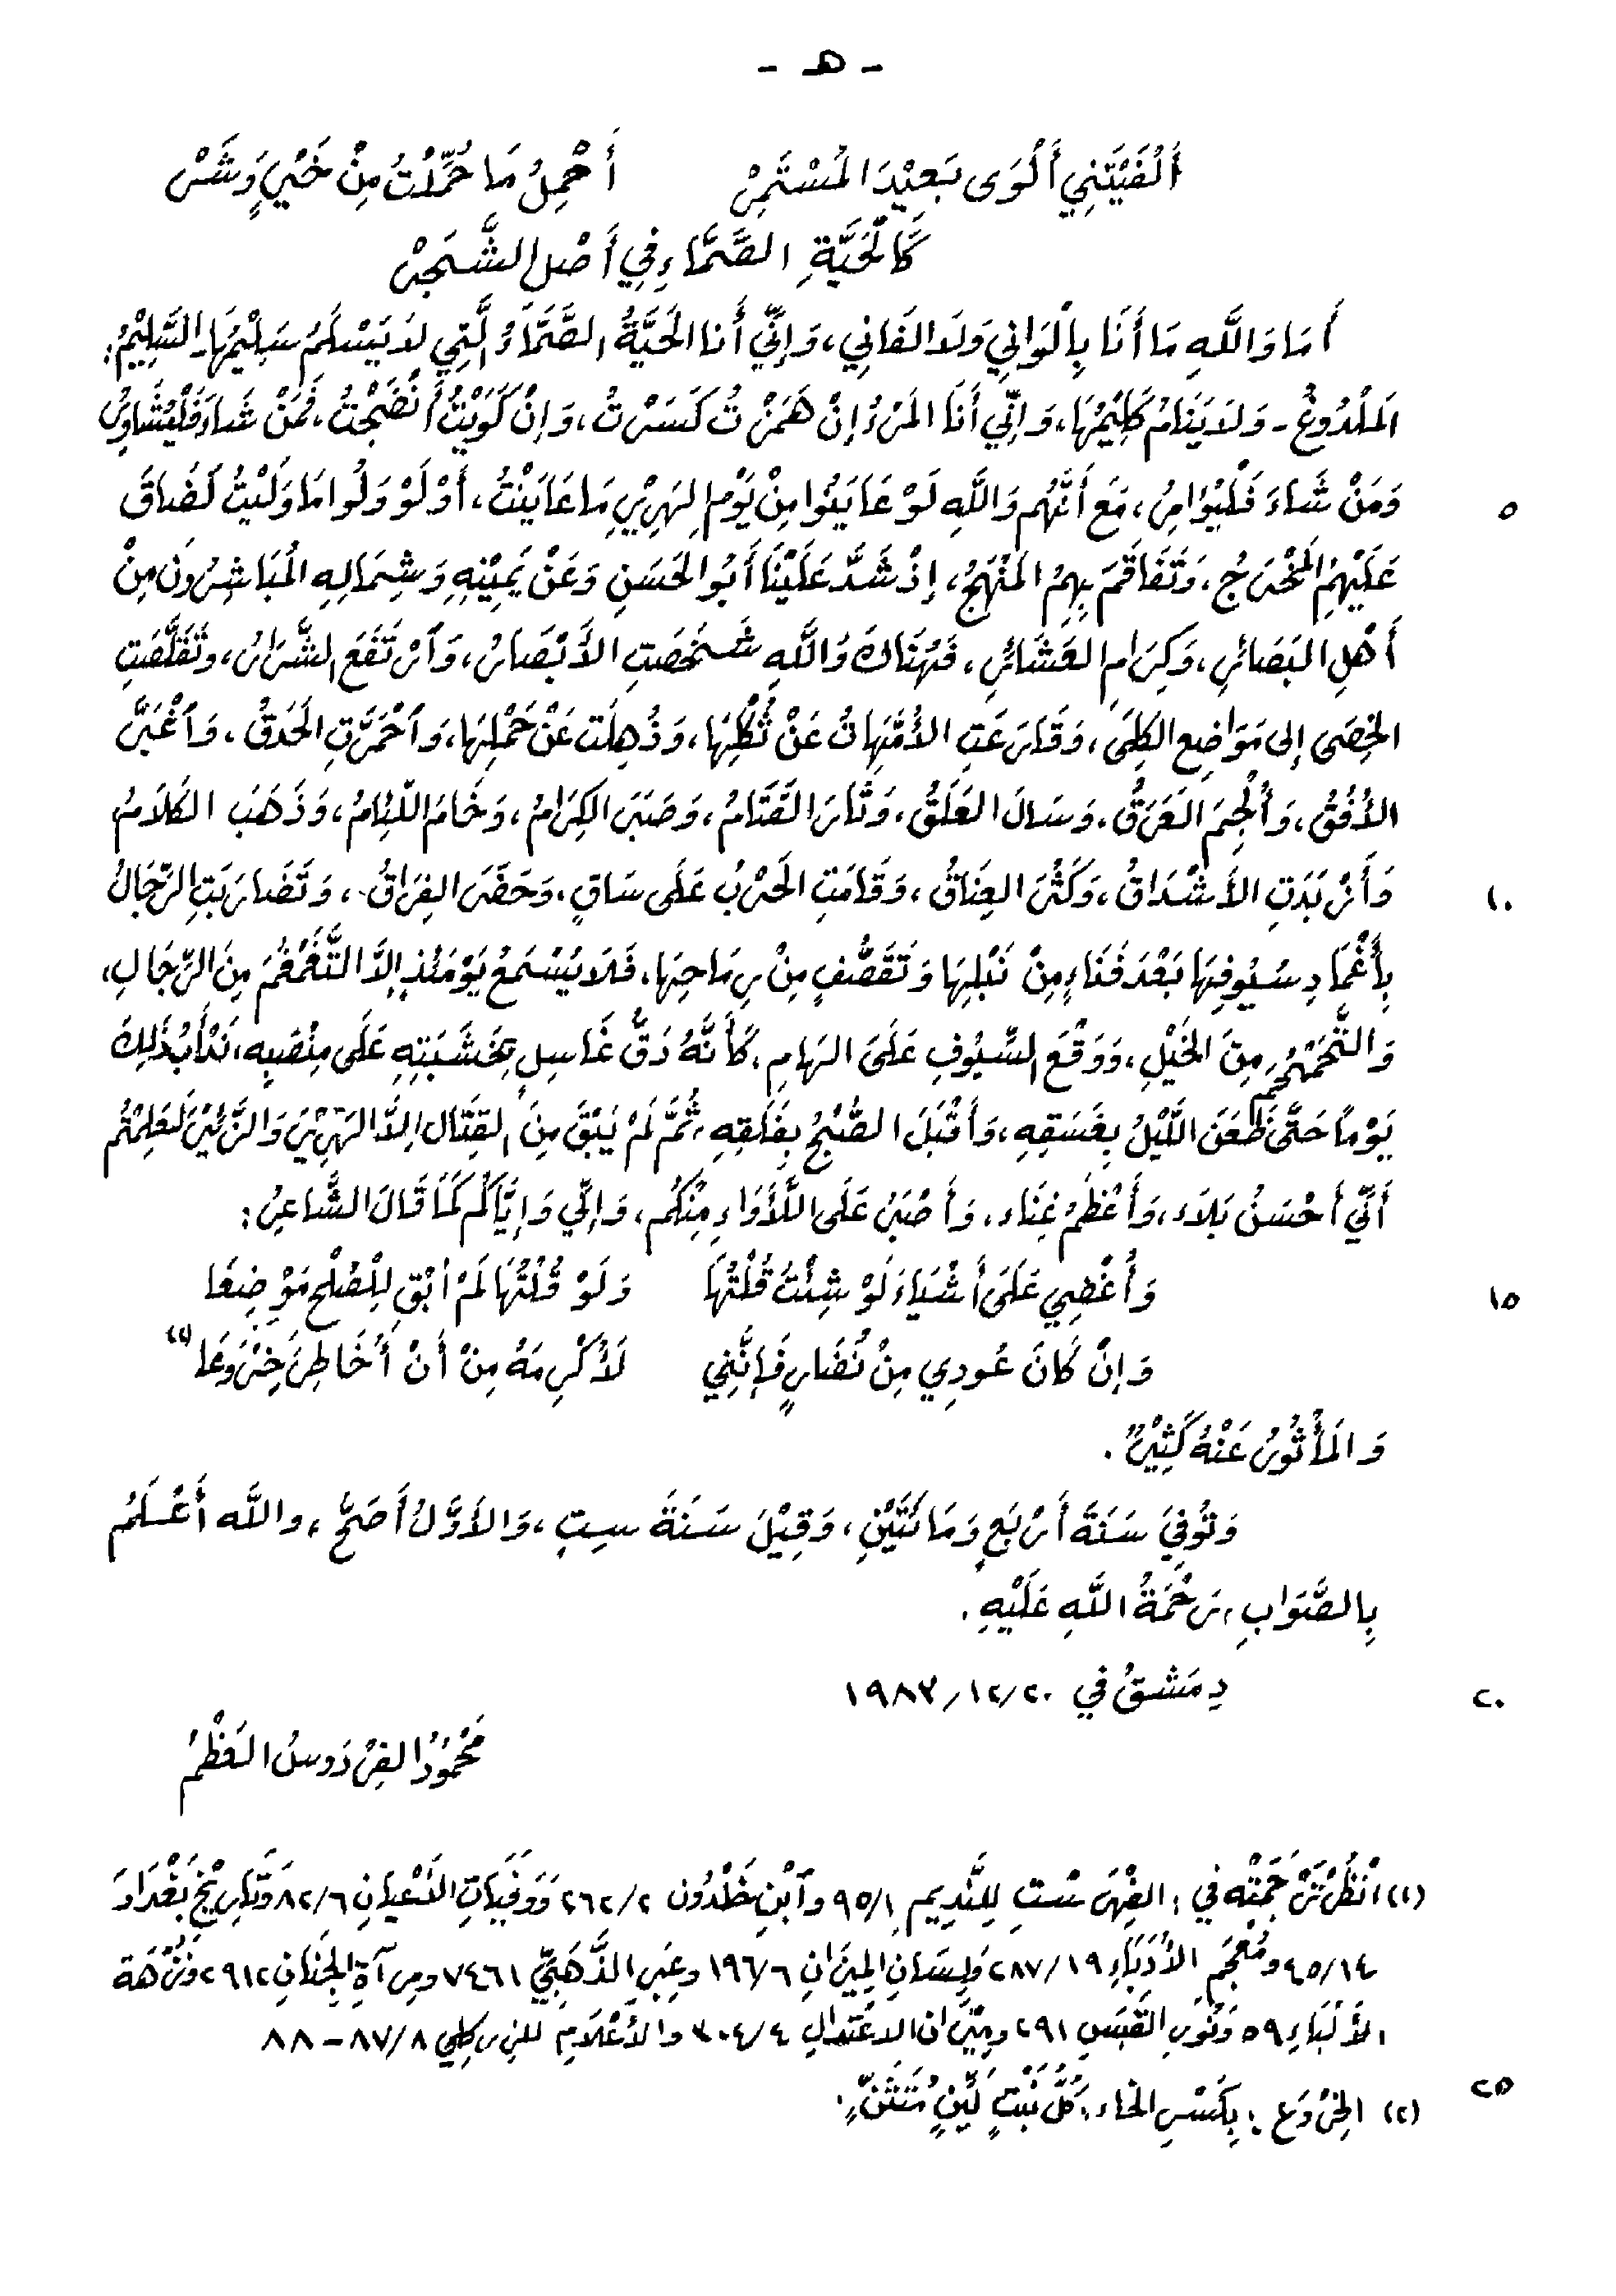 - هـ -
أَلْفَيْتَنِي أَلْوَى بَعِيْدَ المُسْتَمِرْ أَحْمِلُ مَا حُمِّلْتُ مِنْ خَيْرٍ وَشَرْ
كَالْحَيَّةِ الصَّمَّاءِ فِي أَصْلِ الشَّجَرْ
أَمَا وَاللَّهِ مَا أَنَا بِالْوَانِي وَلَا الفَانِي، وَإِنِّي أَنا الحَيَّةُ الصَّمَّاءُ الَّتِي لَا يَسْلَمُ سَلِيْمُهَا -السَّلِيْمُ:
المَلْدُوغُ- وَلَا يَنَامُ كَلِيْمُهَا، وَإِنِّي أَنَا المَرْءُ إِنْ هَمَزْتُ كَسَرْتُ، وَإِنْ كَوَيْتُ أَنْضَجْتُ، فَمَنْ شَاءَ فَلْيُشَاوِرْ
٥ وَمَنْ شَاءَ فَلْيُؤَامِرْ، مَعَ أَنَّهُم وَاللَّهِ لَوْ عَايَنُوا مِنْ يَوْمِ الهَرِيْرِ مَا عَايَنْتُ، أَوْ لَوْ وَلُوا مَا وَلَيْتُ لَضَاقَ
عَلَيْهِمُ المَخْرَجُ، وَتَفَاقَمَ بِهِمُ المَنْهَجُ، إِذْ شَدَّ عَلَيْنَا أَبُو الحَسَنِ وَعَنْ يَمِيْنِهِ وَشِمَالِهِ المُبَاشِرُونَ مِنْ
أَهْلِ البَصَائِرِ، وَكِرَامِ العَشَائِرِ، فَهُنَاكَ وَاللَّهِ شَخَصَتِ الأَبْصَارُ، وَٱرْتَفَعَ الشَّرَارُ، وَتَقَلَّصَتِ
الخِصَى إلى مَوَاضِعِ الكِلَى، وَقَارَعَتِ الأُمَّهَاتُ عَنْ ثُكْلِهَا، وَذُهِلَت عَنْ حَمْلِهَا، وَٱحْمَرَّتِ الحَدَقُ، وَٱغْبَرَّ
الأُفُقُ، وَأُلْجِمَ العَرَقُ، وَسَالَ العَلَقُ، وَثَارَ القَتَامُ، وَصَبَرَ الكِرَامُ، وَخَامَ اللِّئَامُ، وَذَهَبَ الكَلَامُ
١٠ وَأَزْبَدَتِ الأَشْدَاقُ، وَكَثُرَ العِنَاقُ، وَقَامَتِ الحَرْبُ عَلَى سَاقٍ، وَحَضَرَ الفِرَاقُ، وَتَضَارَبَتِ الرِّجَالُ
بِأَغْمَادِ سُيُوفِهَا بَعْدَ فَنَاءٍ مِنْ نَبْلِهَا وَتَقَصُّفٍ مِنْ رِمَاحِهَا، فَلَا يُسْمَعُ يَوْمَئذٍ إِلَّا التَّغَمْغُمَ مِنَ الرِّجَالِ،
وَالتَّحَمْحُمَ مِنَ الخَيْلِ، وَوَقْعَ السُّيُوفِ عَلَىَ الهَامِ، كَأَنَّهُ دَقُّ غَاسِلٍ بِخَشَبَتِهِ عَلَى مِنْصَبِهِ، نَدْأَبُ ذَلِكَ
يَوْماً حَتَّى ظَعَنَ اللَّيْلُ بِغَسَقِهِ، وَأَقْبَلَ الصُّبْحُ بِفَلَقِهِ، ثُمَّ لَمْ يَبْقَ مِنَ القِتَالِ إِلَّا الهَرِيْرَ وَالزَّئِيْرَ لَعَلِمْتُم
أَنِّي أَحْسَنُ بَلَاء، وَأَعْظَمُ غِنَاء، وَأَصْبَرُ عَلَى اللَّأْوَاءِ مِنْكُم، وَإِنِّي وَإِيَّاكُم كَمَا قَالَ الشَّاعِرُ:
١٥ وَأُغْضِي عَلَىَ أَشْيَاءَ لَوْ شِئْتُ قُلْتُهَا وَلَوْ قُلْتُهَا لَمْ أبْقِ لِلْصُلْحِ مَوْضِعَا
وَإنْ كَانَ عُودِي مِنْ نُضَارٍ فَإِنَّنِي لَأُكْرِمَهُ مِنْ أَنْ أُخَاطِرَ خِرْوَعَا (٢)
وَالمَأْثُورُ عَنْهُ كَثِيْرٌ.
وَتُوُفِيَ سَنَةَ أَرْبَعٍ وَمَائَتَيْنِ، وَقِيْلَ سَنَةَ سِتٍ، وَالأَوَّلُ أَصَحُّ، والله أَعْلَمُ
بِالصَّوَابِ، رَحْمَةُ اللَّهِ عَلَيْهِ.
٢٠ دِمَشقُ في ٢٠/١٢/١٩٨٣
مَحْمُوُد الفِرْدَوسُ العَظْم
(١) انْظُرْ تَرْجَمَتِه في: الفِهْرَسْتِ لِلنَّدِيمِ ٩٥/١ وٱبْنِ خَلْدُون ٢٦٢/٢ وَوَفَيَاتِ الأَعْيَانِ ٨٢/٦ وَتَارِيْخِ بَغْدَادَ
٤٥/١٤ ومُعْجَمِ الأُدَبَاءِ ٢٨٧/١٩ وَلِسَانِ المِيزَانِ ١٩٦/٦ وعِبَرِ الذَّهَبِيِّ ٧٤٦١ ومِرآةِ الجِنَانِ ٢٩١٢ ونُزْهَة
الأَلْبَاءِ ٥٩ وَنُورِ القَبَسِ ٢٩١ ومِيْزَان الاعْتِدَالِ ٣٠٤/٤ والأَعْلَامِ للزِرِكلِي ٨٧/٨ - ٨٨
٢٥ (٢) الخِرْوَع: بِكَسْرِ الخاء، كُلُّ نَبْتٍ لَيِّنٍ مُتَثَنٍّ.